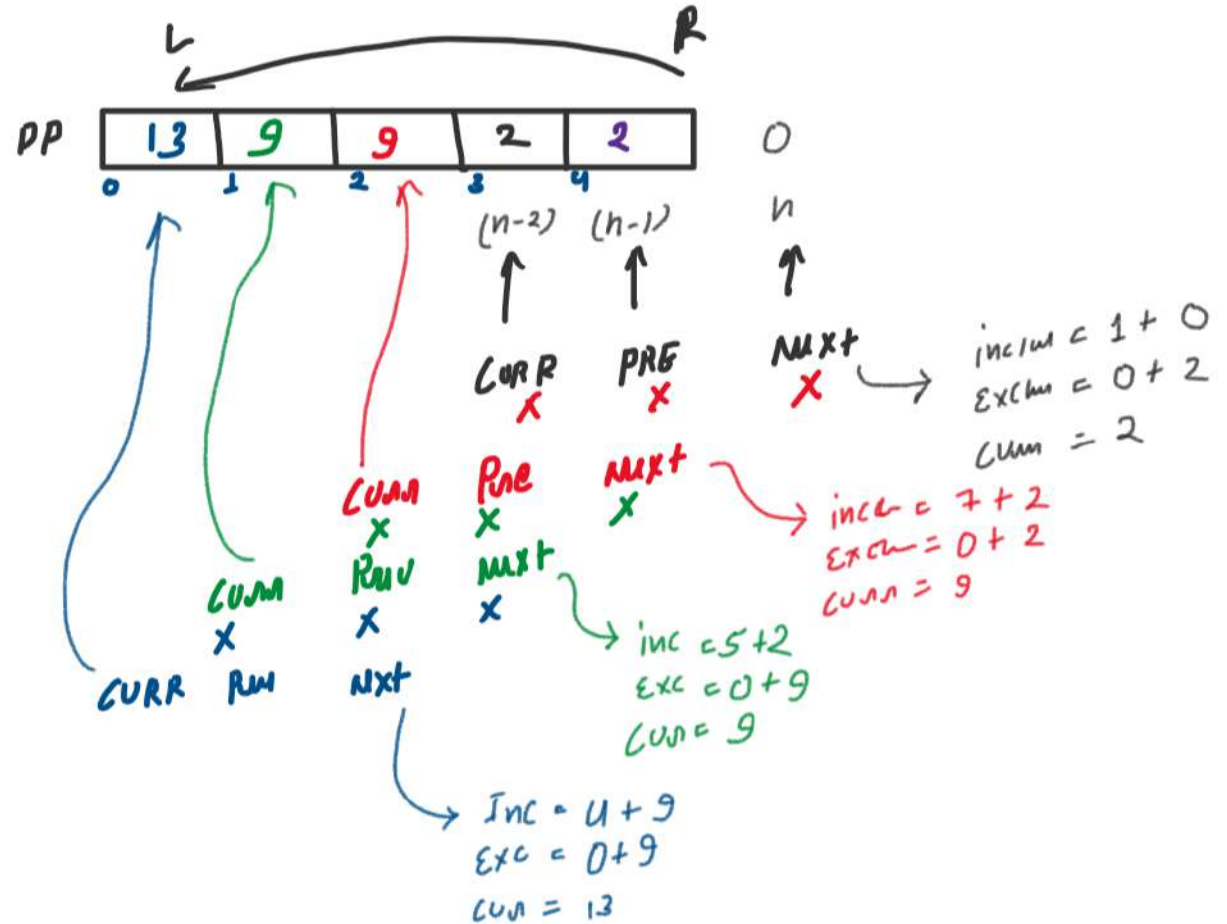 L R
DP 13 9 9 2 2 0
0 1 2 3 4
(n-2) (n-1) n
CURR PRE Nxt
X X X
inclu = 1 + 0
Exclu = 0 + 2
Curr = 2
Curr Pre Nxt
X X X
inc = 7 + 2
Exclu = 0 + 2
Curr = 9
Curr Nxt
X X X
inc = 5+2
Exc = 0+9
Curr = 9
CURR Nxt
Inc = 4 + 9
Exc = 0+9
Curr = 13